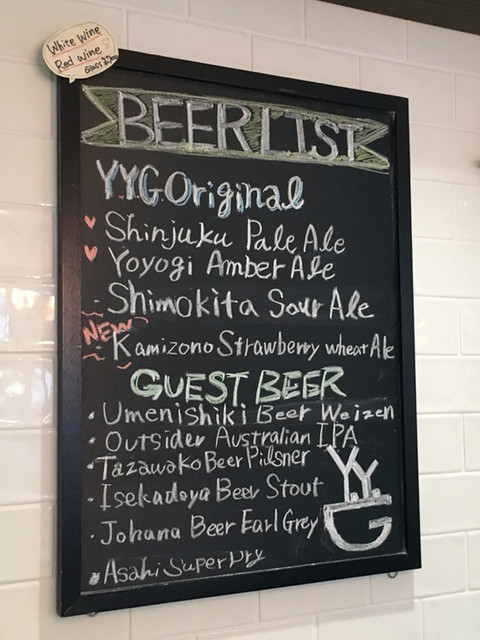 White Wine
Red Wine
BEER LIST
YYG Original
Shinjuku Pale Ale
Yoyogi Amber Ale
Shimokita Sour Ale
NEW
Kamizono Strawberry wheat Ale
GUEST BEER
Umenishiki Beer Weizen
Outsider Australian IPA
Tazawako Beer Pilsner
Isekadoya Beer Stout
Johana Beer Earl Grey
Asahi Super Dry
YYG